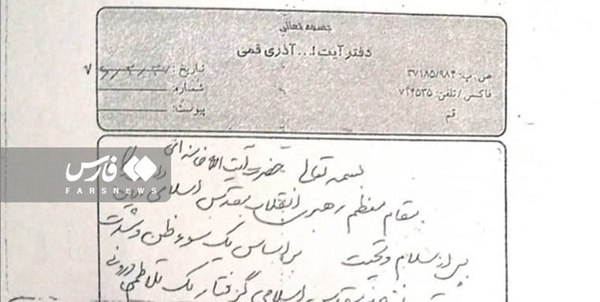 بسمه تعالی
دفتر آیت ا... آذری قمی
ص.پ: ۳۷۱۸۵/۹۸۴
فاکس / تلفن: ۷۲۴۵۳۵
قم
تاریخ:
شماره:
پیوست:
فارس
FARSNEWS
بسمه تعالی حضرت آیت الله خامنه‌ای
مقام معظم رهبری انقلاب مقدس اسلامی
پس از سلام و تحیت بر اساس یک سوء ظن و
اسلامی گرفتار یک تلاطم